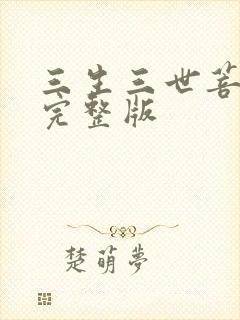 三生三世菩
完整版
楚萌夢